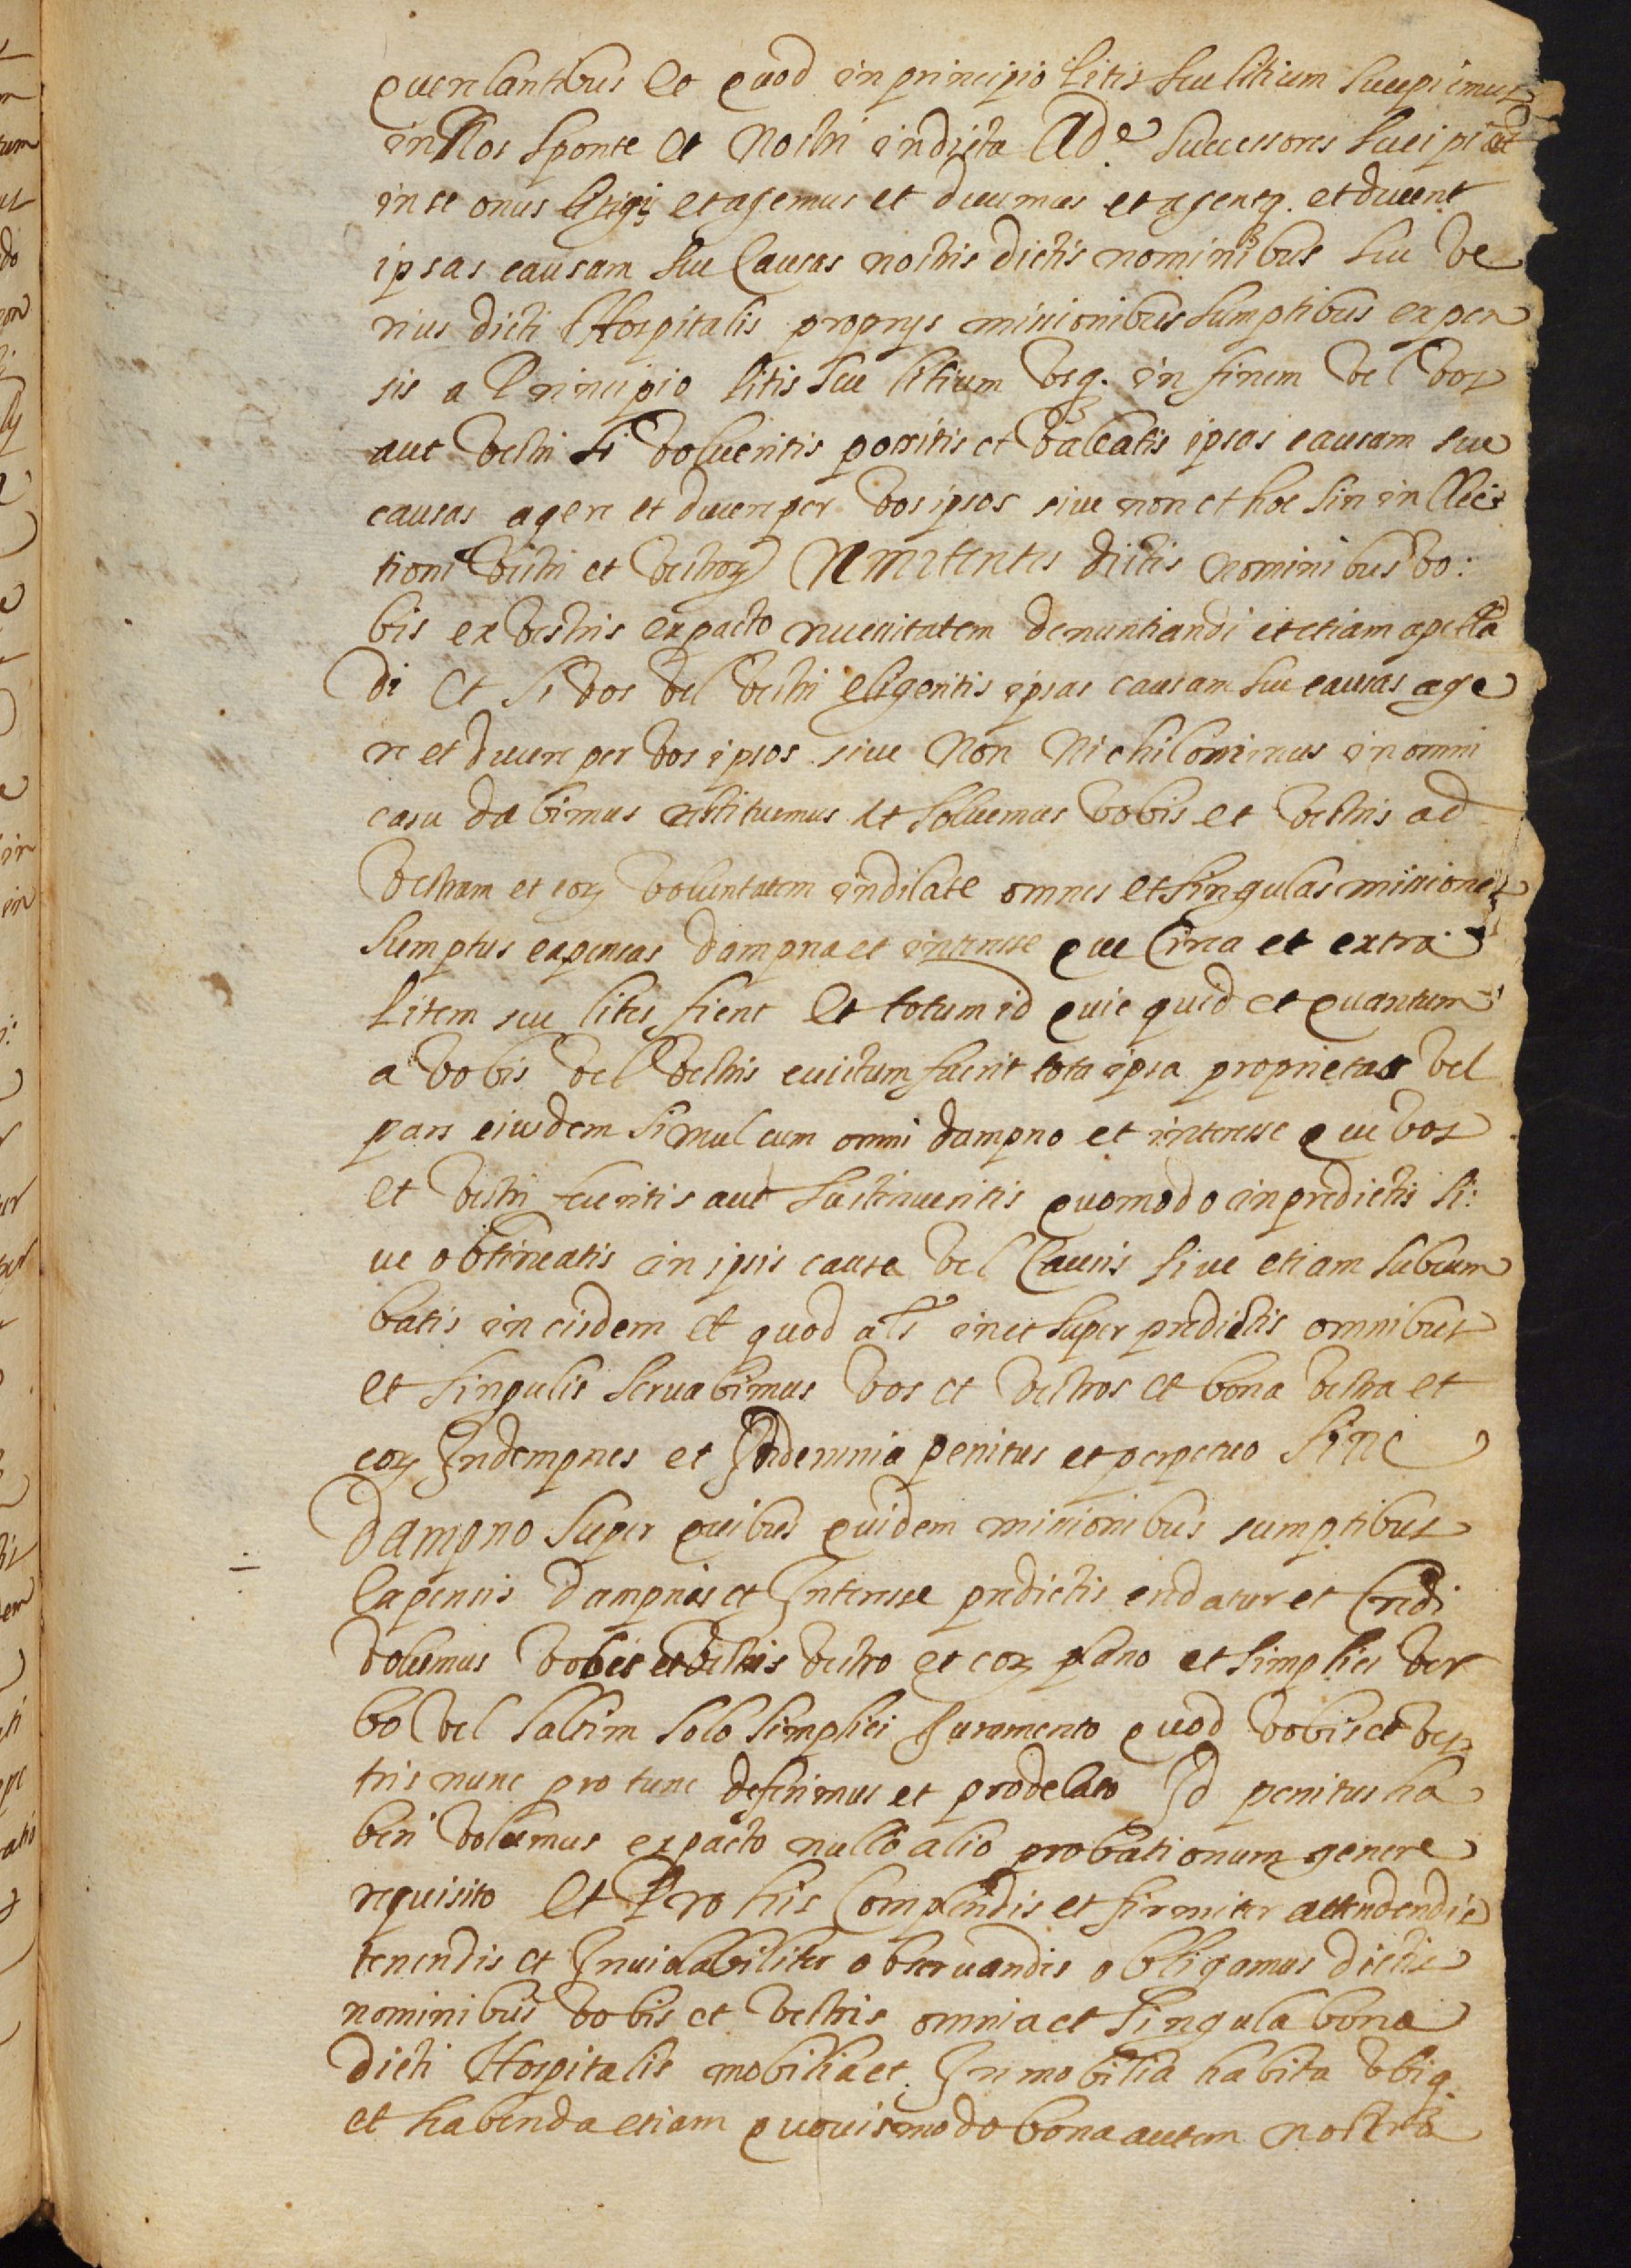 querelantibus Et quod in principio litis seu litium suscipimus
in Nos sponte Et Nostri in dicta Ad.e successores suscipiat
in se onus litigij et agemus et ducemus et agent et ducent
ipsas causam seu Causas nostris dictis nominibus seu ve
rius dicti Hospitalis proprijs missionibus sumptibus expen
sis a Principio litis seu litium usq. in finem vel vos
aut vestri si volueritis possitis et valeatis ipsas causam seu
causas agere et ducere per vos ipsos sive non et hoc sin in ellec:
tione vestri et vestroꝝ Remitentes dictis nominibus vo:
bis ex vestris ex pacto necessitatem denuntiandi et etiam apella
di Et si vos vel vestri eligeritis ipsas causam seu causas age
re et ducere per vos ipsos sive Non Nichilominus in omni
casu dabimus restituemus et soluemus vobis et vestris ad
vestram et eoꝝ voluntatem indilate omnes et singulas missiones
sumptus expensas dampna et interesse que Circa et extra
litem seu lites fient Et totum id quicquid et quantum
a vobis vel vestris evictum fuerit tota ipsa proprietas vel
pars eiusdem simul cum omni dampno et interesse que vos
et vestri feceritis aut sustinueritis quomodo in predictis si:
ve obtineatis in ipsis causa vel Causis sive etiam subcum
batis in eisdem Et quod als in et super predictis omnibus
et singulis servabimus vos et vestros et bona vestra et
eoꝝ Indempnes et Indemnia penitus et perpetuo sine
dampno super quibus quidem missionibus sumptibus
Expensis dampnis et Interesse predictis credatur et Credi
volumus vobis et vestris vestro et eoꝝ plano et simplici ver
bo vel saltim solo simplici Juramento quod vobis et ves
tris nunc pro tunc deferimus et pro delato Id penitus ha
beri volumus ex pacto nullo alio probationum genere
requisito Et Pro his Complendis et firmiter attendendis
tenendis et Inviolabiliter observandis obligamus dictis
nominibus vobis et vestris omnia et singula bona
dicti Hospitalis mobilia et Inmobilia habita ubiq.
et habenda etiam quovismodo bona autem nostra